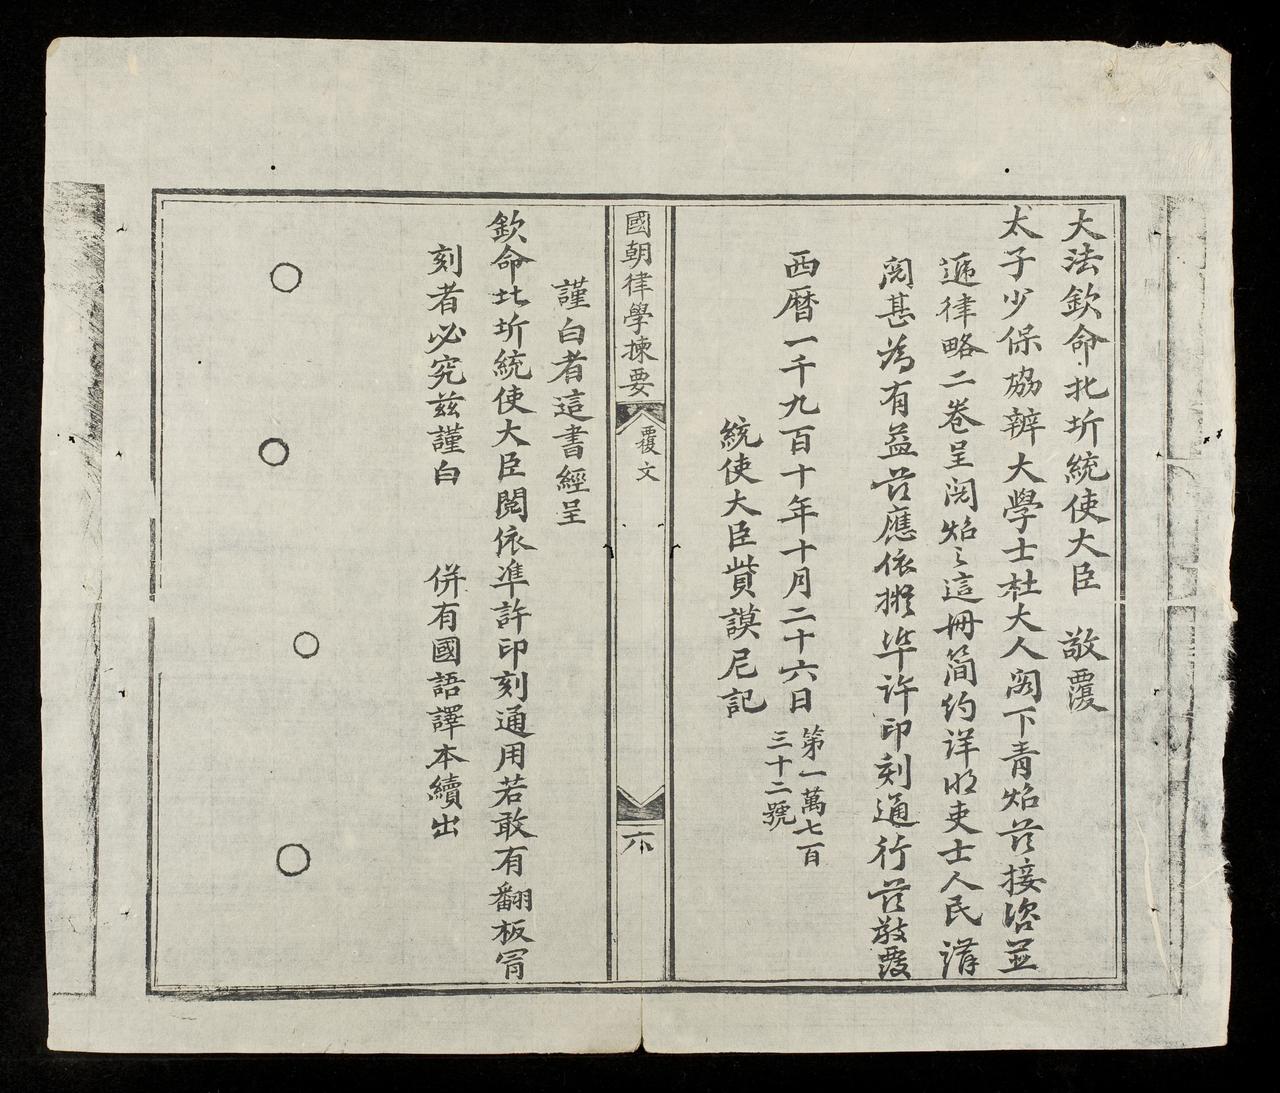 大法欽命北圻統使大臣 敬覆
太子少保協辨大學士杜大人阁下青炤玆接咨並
遞律略二卷呈閱炤之這冊简約详明吏士人民講
閱甚為有益玆應依擬準許印刻通行玆敬覆
西曆一千九百十年十月二十六日 第一萬七百
三十二號
統使大臣貲謨尼記
國朝律學揀要 覆文 六
謹白者這書經呈
欽命北圻統使大臣閱依準許印刻通用若敢有翻板冐
刻者必究茲謹白 併有國語譯本續出